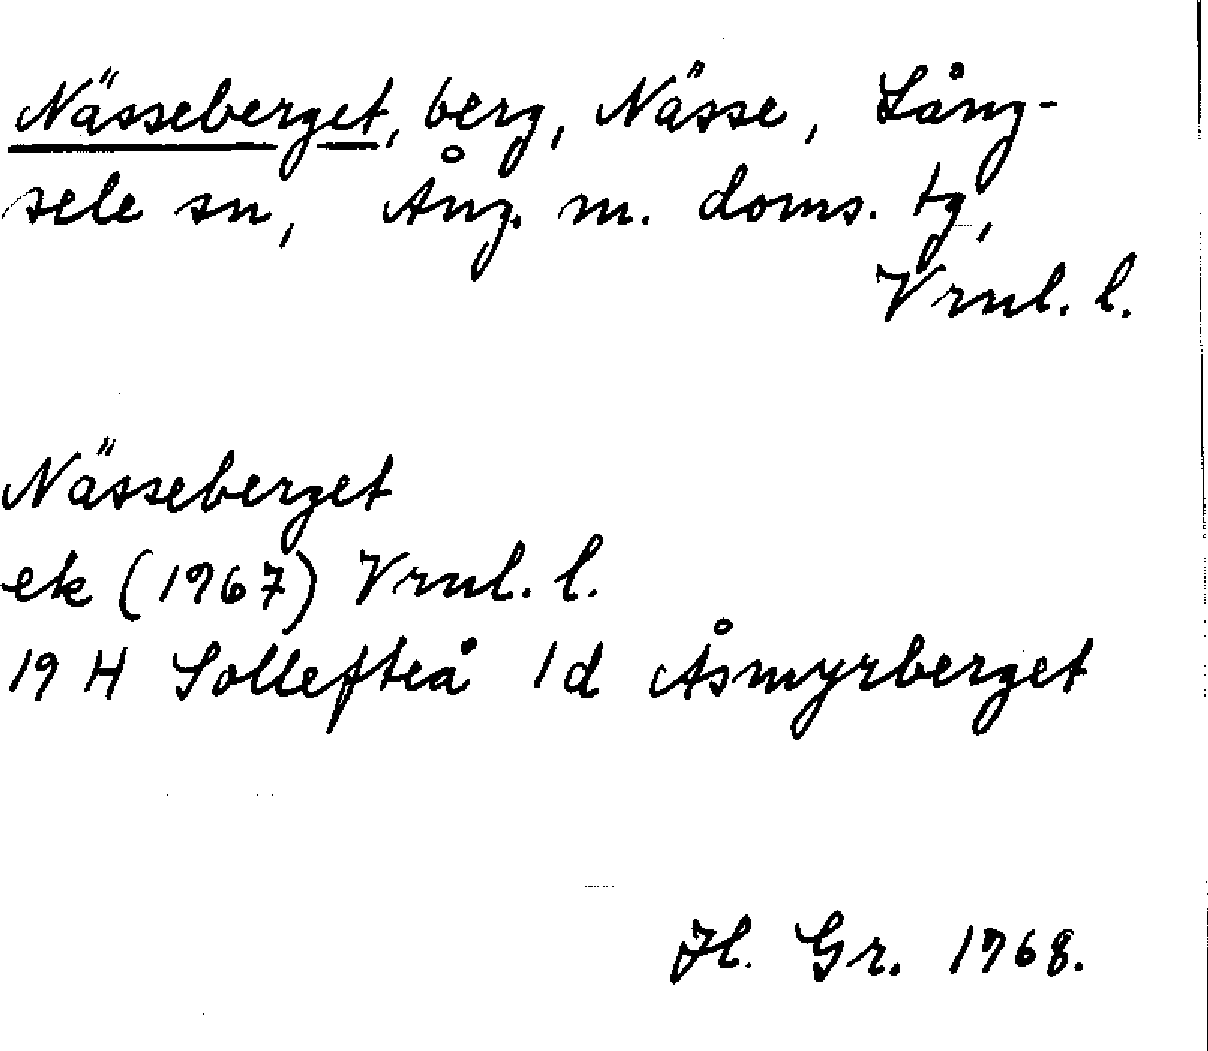 Nässeberget, berg, Nässe, Lång-
sele sn, Ång. m. doms. tg,
Vrnl. l.
Nässeberget
ek (1967) Vrnl. l.
19 H Sollefteå 1d Åsmyrberget
Hl. Gr. 1968.